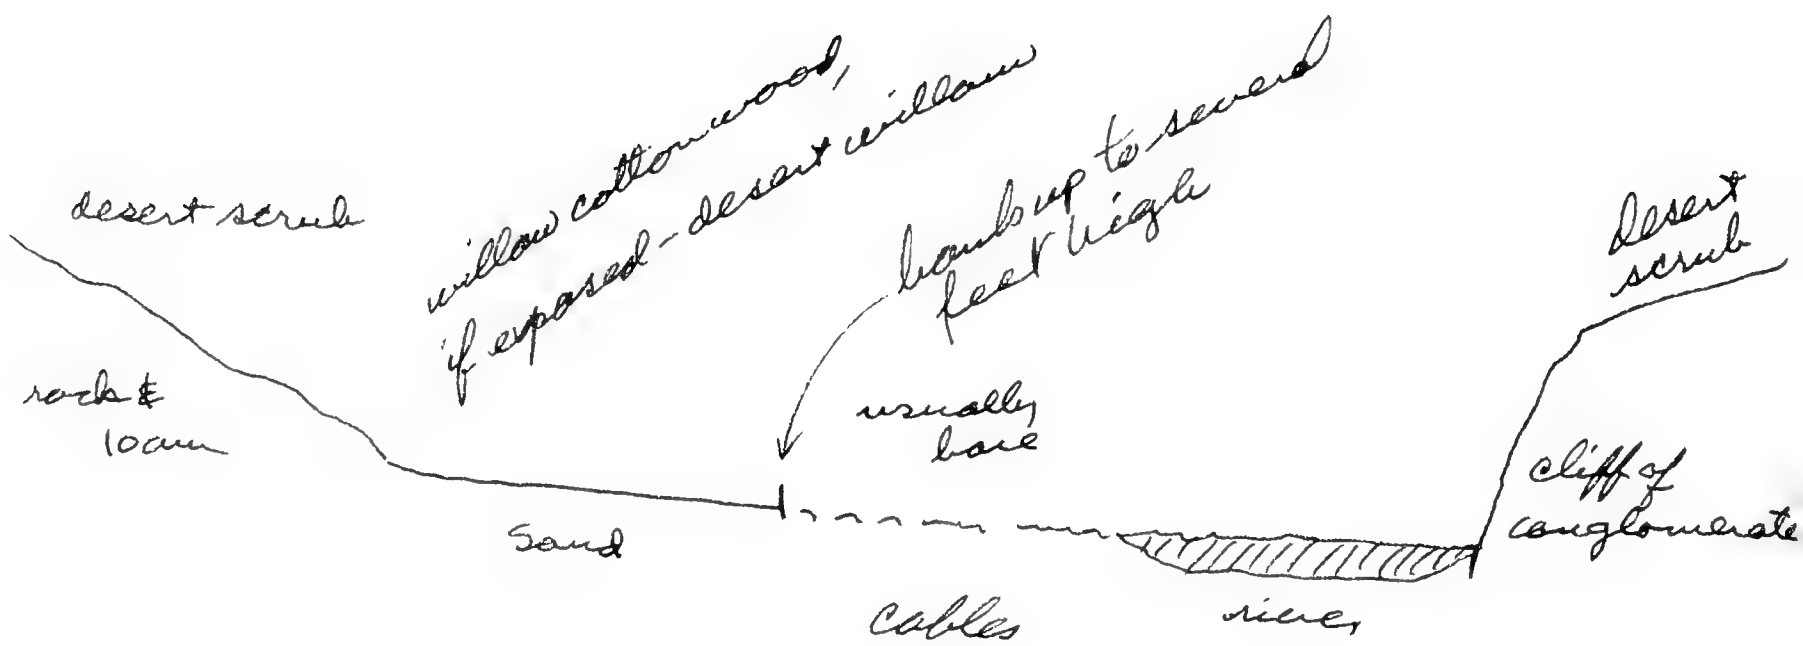 willow cottonwood,
if exposed - desert willow
banks up to several
feet high
desert scrub
Desert
scrub
rock &
loam
usually
bare
cliff of
conglomerate
Sand
cobbles
river